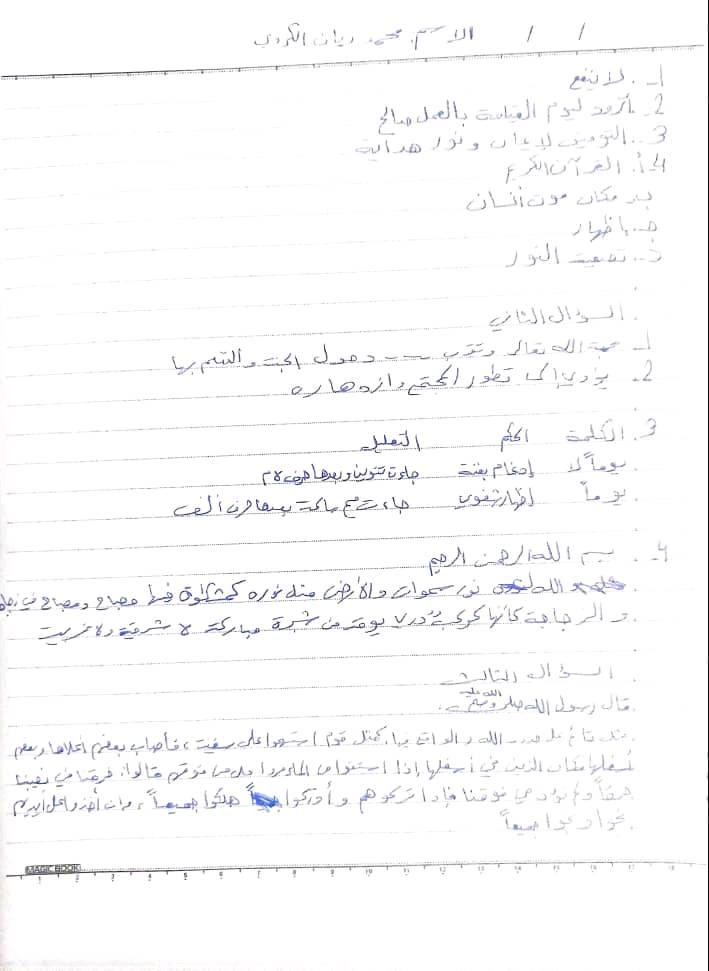 / / الاسم: محمد ريان الكردي
1- لا ينفع
2- أتزود ليوم القيامة بالعمل صالح
3- التومين لإيمان ونور هداية
4- أ. القرآن الكريم
ب- مكان موت أنسان
جـ- إظهار
السؤال الثاني
1- محبة الله تعالى -- دحول الجنة والتنعم بها
2- يؤدي إلى تطور المجتمع وازدهاره
3- الكلمة الحكم التعليل
يوماً لا إدغام بغنة جاءت تنوين وبعدها حرف لام
يوماً إظهار شفوي جاءت ساكنة بعدها حرف ألف
4- بسم الله الرحمن الرحيم
الله نور سموات والأرض مثل نوره كمشكاوة فيها مصباح ومصباح في زجاجة
والزجاجة كأنها كوكب دري يوقد من شجرة مباركة لا شرقية ولا غربيت
السؤال الثالث
قال رسول الله صلى الله عليه وسلم
مثل قائم على حدود الله والواقع بها، كمثل قوم استهموا على سفينة، فأصاب بعضهم أعلاها وبعضهم
أسفلها فكان الذين في أسفلها إذا استقوا من الماء مروا على من فوقهم قالوا: خرقنا في
خرقاً ولم نؤذي فوقنا فإذا تركوهم و هلكوا جميعاً، وإن أخذوا على أيديهم
نجوا ونجوا جميعاً
MAGIC BOOK
1 2 3 4 5 6 7 8 9 10 11 12 13 14 15 16 17 18